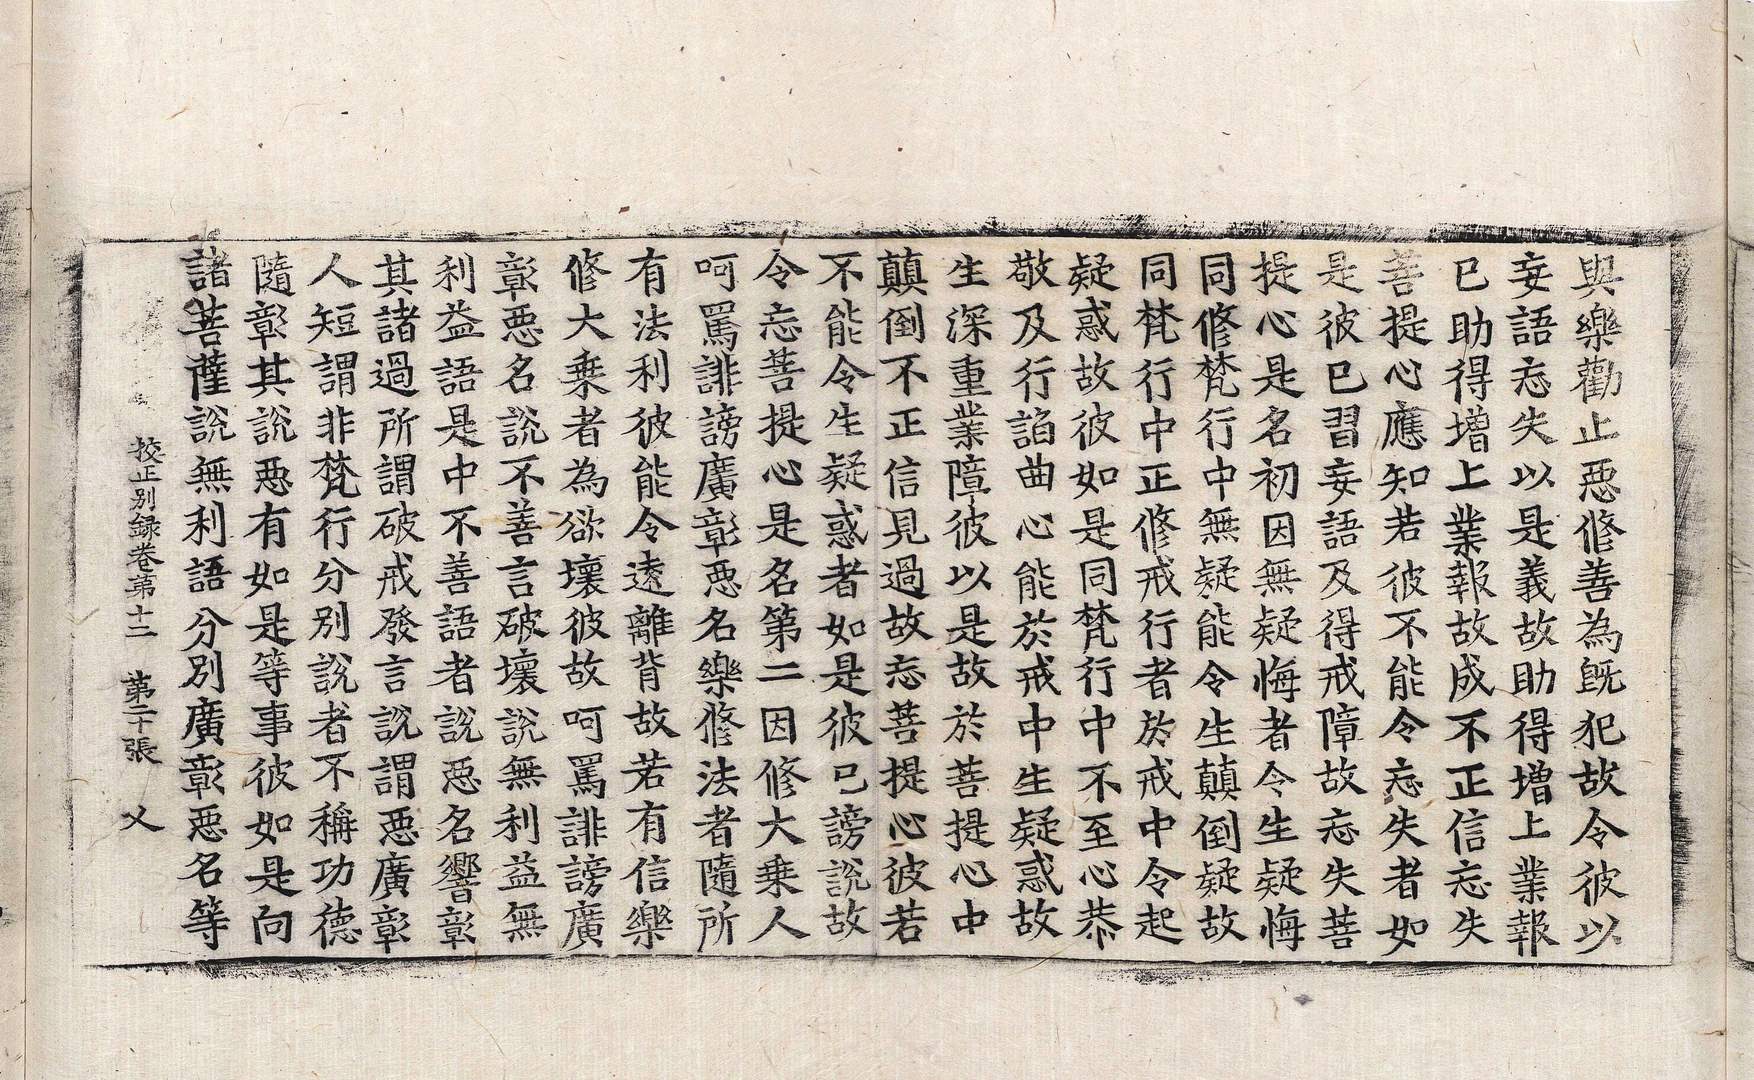 與樂勸止惡修善為旣犯故令彼以
妄語忘失以是義故助得增上業報
已助得增上業報故成不正信忘失
菩提心應知若彼不能令忘失者如
是彼已習妄語及得戒障故忘失菩
提心是名初因無疑悔者令生疑悔
同修梵行中無疑能令生顚倒疑故
同梵行中正修戒行者於戒中令起
疑惑故彼如是同梵行中不至心恭
敬及行諂曲心能於戒中生疑惑故
生深重業障彼以是故於菩提心中
顚倒不正信見過故忘菩提心彼若
不能令生疑惑者如是彼已謗說故
令忘菩提心是名第二因修大乗人
呵罵誹謗廣彰惡名樂修法者隨所
有法利彼能令遠離背故若有信樂
修大乗者為欲壞彼故呵罵誹謗廣
彰惡名說不善言破壞說無利益無
利益語是中不善語者說惡名響彰
其諸過所謂破戒發言說謂惡廣彰
人短謂非梵行分別說者不稱功德
隨彰其說惡有如是等事彼如是向
諸菩薩說無利語分別廣彰惡名等
校正别録卷第十二 第二十張 乂